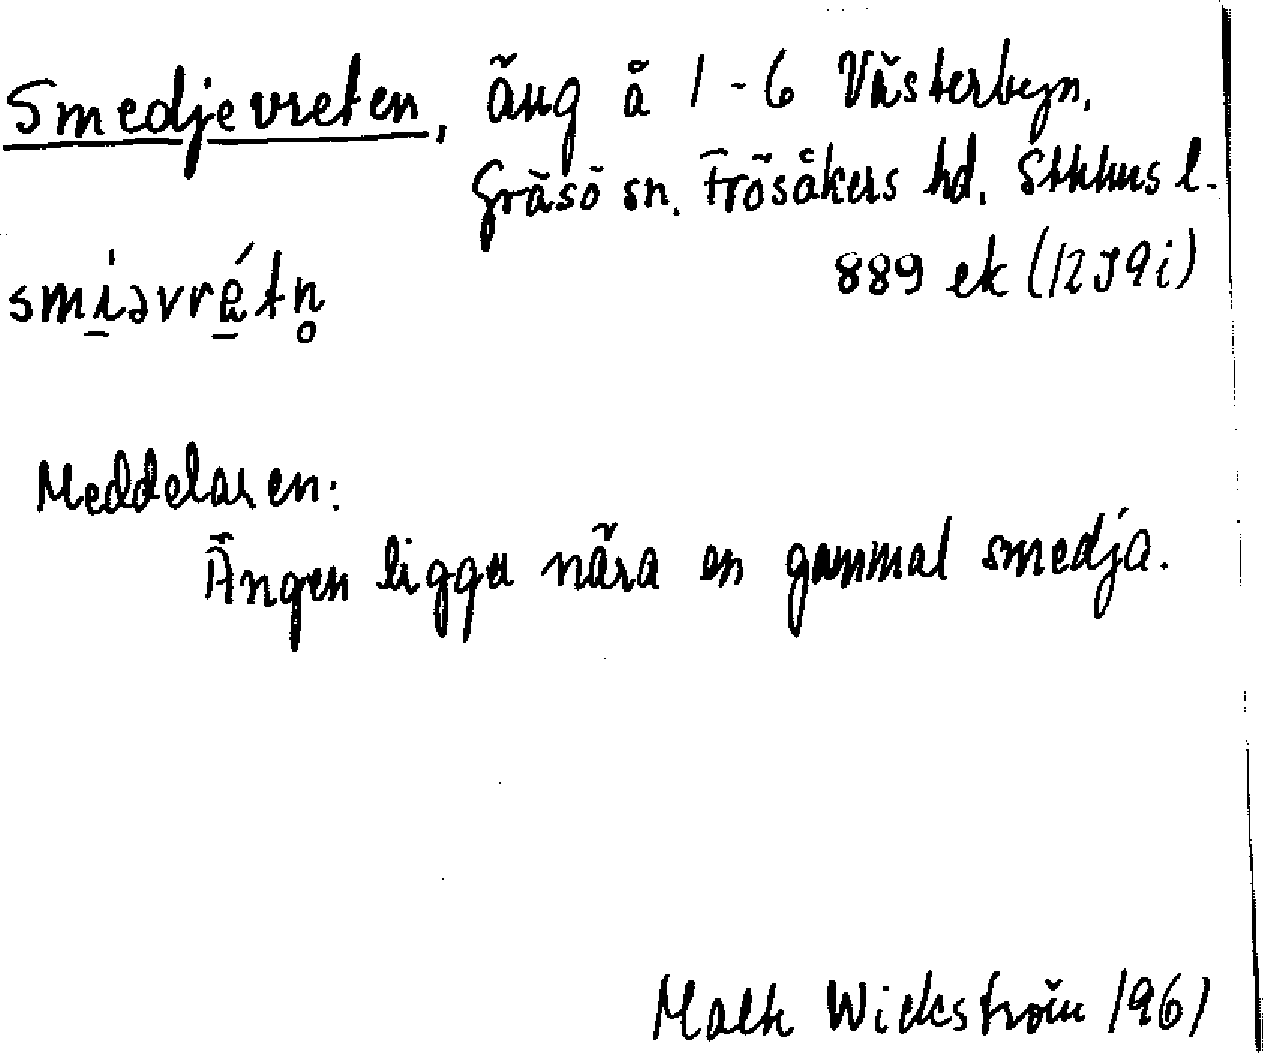 Smedjevreten, äng å 1-6 Västerbyn,
Gräsö sn. Frösåkers hd. Sthlms l.
889 ek (12I9i)
smi̱əvré̱tn̥
Meddelaren:
Ängen ligger nära en gammal smedja.
Wickström 1961